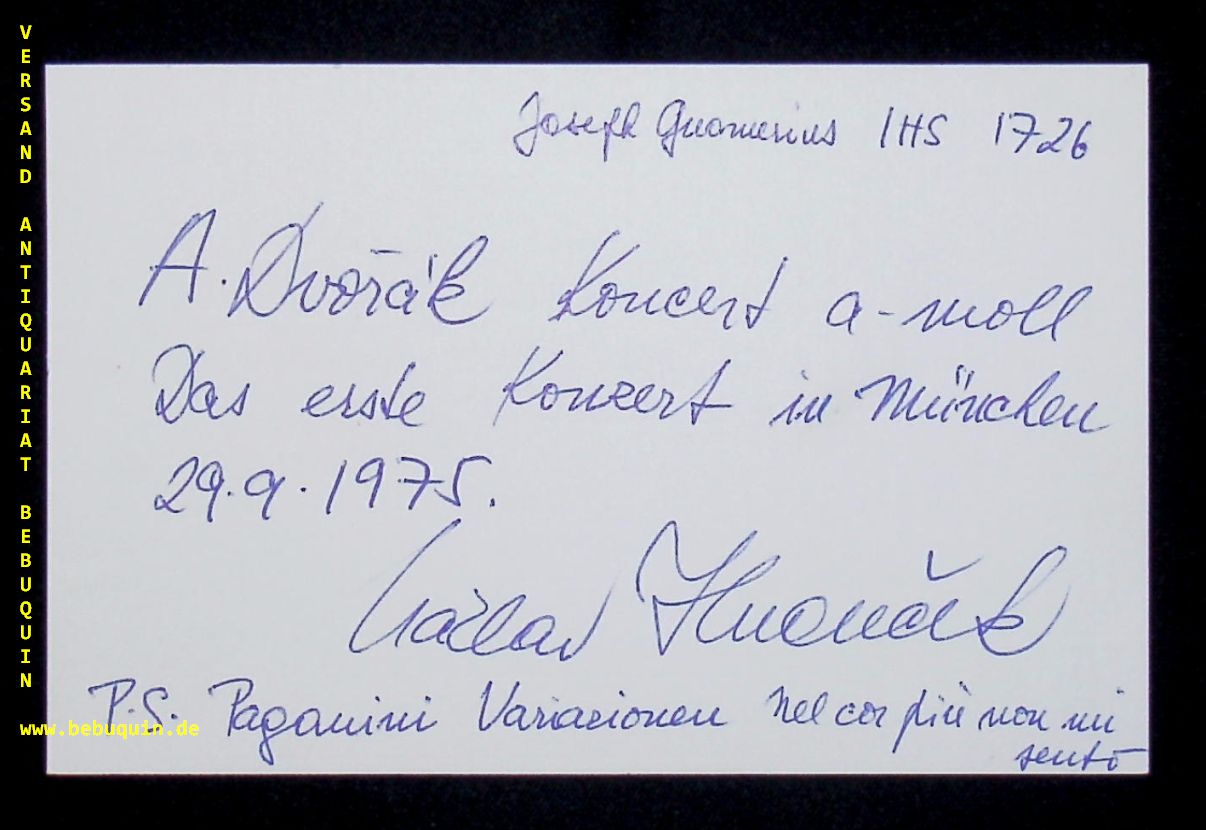 VERSAND ANTIQUARIAT BEBUQUIN
Joseph Guarnerius IHS 1726
A. Dvořák Koncert a-moll
Das erste Konzert in München
29.9.1975.
Václav Hudeček
P.S. Paganini Variacionen Nel cor più non mi
sento
www.bebuquin.de